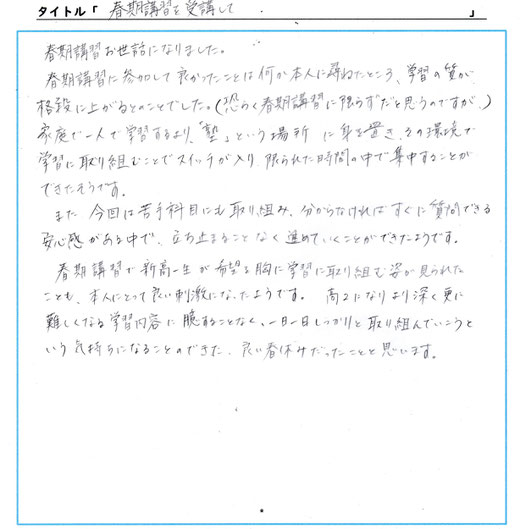 タイトル「 春期講習を受講して 」
春期講習お世話になりました。
春期講習に参加して良かったことは何か本人に尋ねたところ、学習の質が
格段に上がるとのことでした。(恐らく春期講習に限らずだと思うのですが、)
家庭で一人で学習するより、「塾」という場所に身を置き、その環境で
学習に取り組むことでスイッチが入り、限られた時間の中で集中することが
できたそうです。
また今回は苦手科目にも取り組み、分からなければすぐに質問できる
安心感がある中で、立ち止まることなく進めていくことができたようです。
春期講習で新高一生が希望を胸に学習に取り組む姿が見られた
ことも、本人にとって良い刺激になったようです。高2になりより深く更に
難しくなる学習内容に臆することなく、一日一日しっかりと取り組んでいこうと
いう気持ちになることのできた、良い春休みだったことと思います。